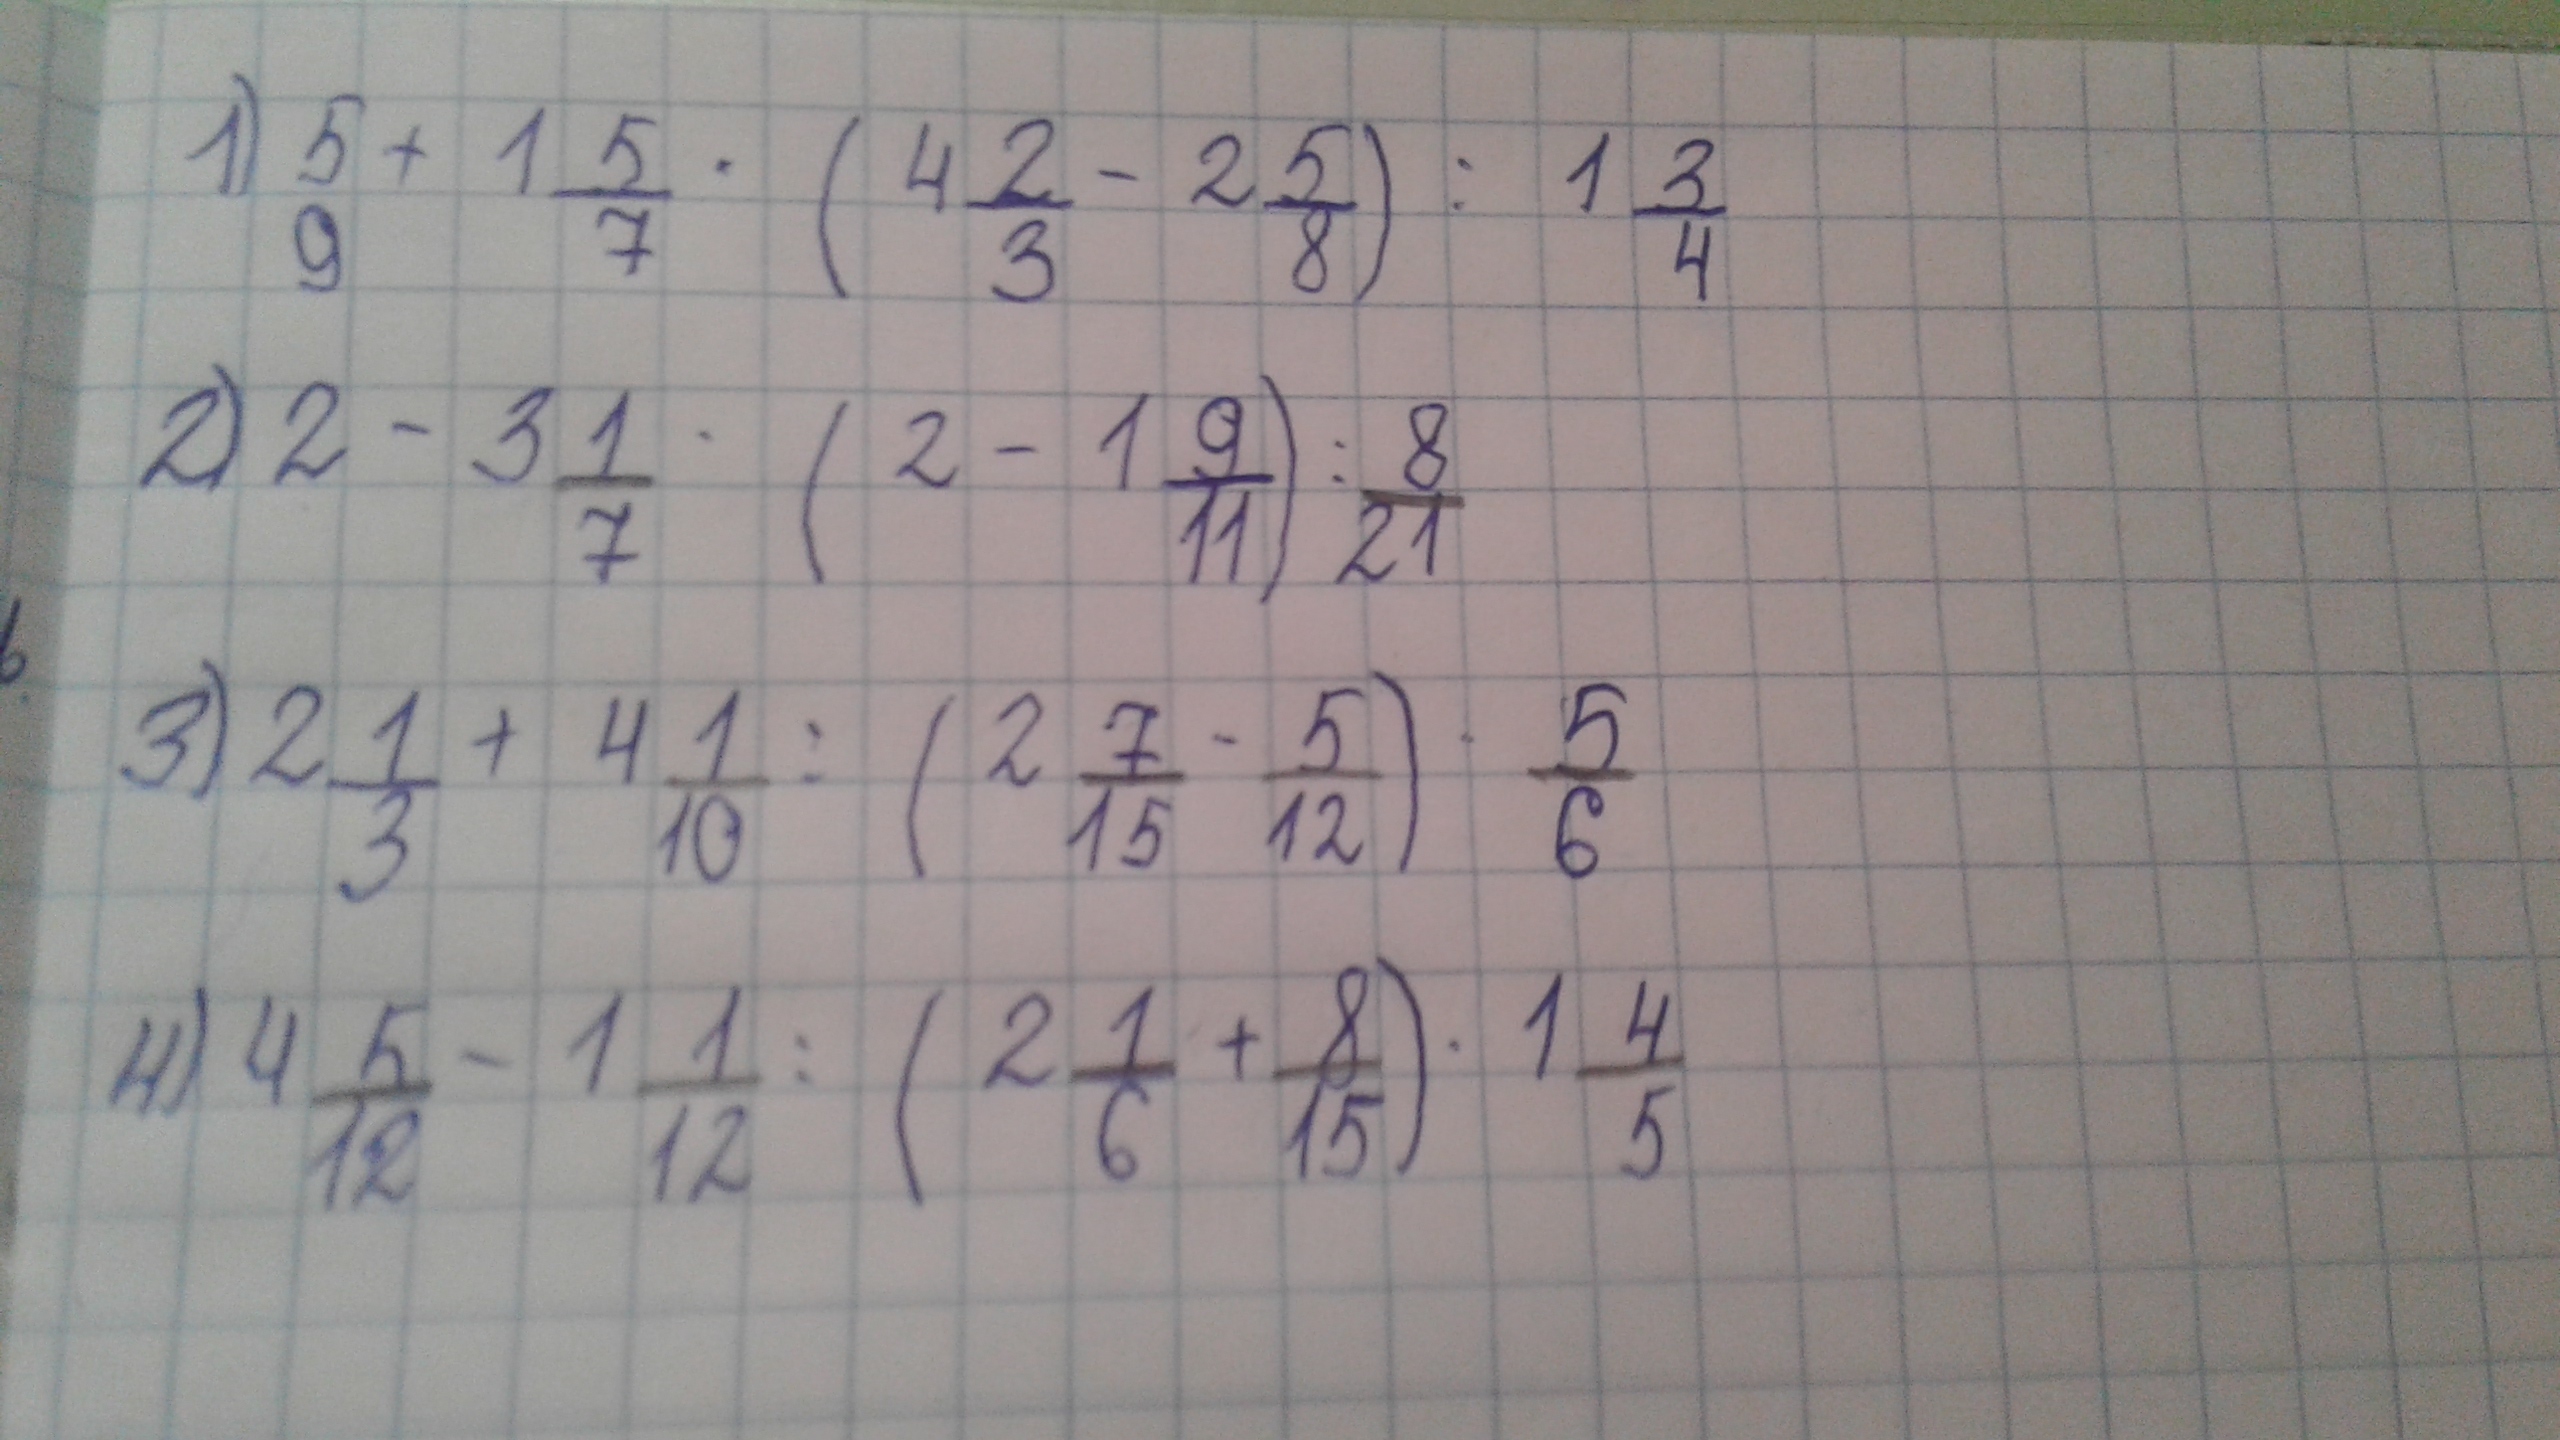 1) 5/9 + 1 5/7 · (4 2/3 - 2 5/8) : 1 3/4
2) 2 - 3 1/7 · (2 - 1 9/11) : 8/21
3) 2 1/3 + 4 1/10 : (2 7/15 - 5/12) · 5/6
4) 4 5/12 - 1 1/12 : (2 1/6 + 8/15) · 1 4/5